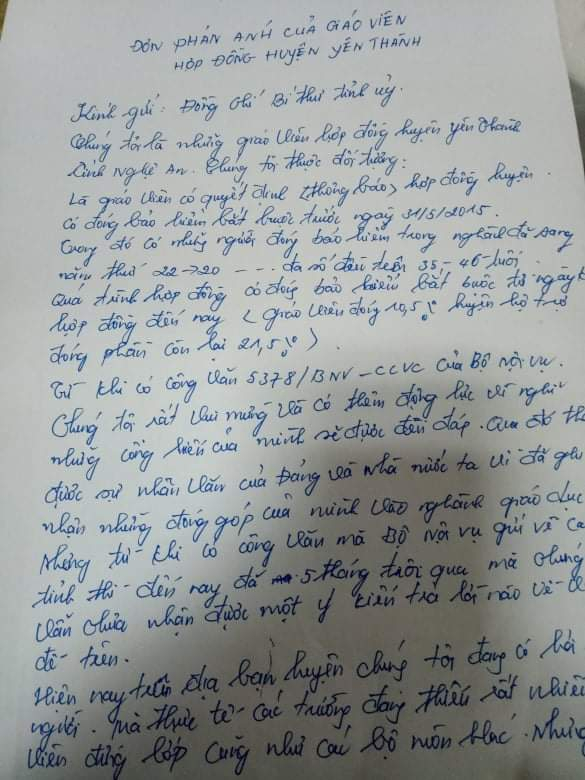 ĐƠN PHẢN ANH CỦA GIÁO VIÊN
HỢP ĐỒNG HUYỆN YÊN THÀNH
Kính gửi: Đồng chí Bí thư tỉnh ủy.
Chúng tôi là những giáo viên hợp đồng huyện yên thành
tỉnh Nghệ An. Chúng tôi thuộc đối tượng:
Là giáo viên có quyết định (thông báo) hợp đồng huyện.
có đóng bảo hiểm bắt buộc trước ngày 31/5/2015.
Trong đó có những người đóng bảo hiểm trong nghành đã sang
năm thứ 22 → 20 --- đa số đến trên 35 - 46 tuổi.
Quá trình hợp đồng có đóng bảo hiểm bắt buộc từ ngày k
hợp đồng đến nay < giáo viên đóng 10,5% huyện hỗ trợ
đóng phần còn lại 21,5% >.
Từ khi có công văn 5378/BNV-CCVC của Bộ Nội vụ.
Chúng tôi rất vui mừng và có thêm động lực vì nghĩ
những cống hiến của mình sẽ được đền đáp. Qua đó th
được sự nhân văn của Đảng và nhà nước ta vì đã ghi
nhận những đóng góp của mình vào nghành giáo dục
Nhưng từ khi có công văn mà Bộ Nội vụ gửi về cá
tỉnh thì đến nay đã 5 tháng trôi qua mà chúng
vẫn chưa nhận được một ý kiến trả lời nào về v
đề trên.
Hiện nay trên địa bàn huyện chúng tôi đang có
người. Mà thực tế các trường đang thiếu rất nhiều
viên đứng lớp cũng như các bộ môn khác. Nhưng